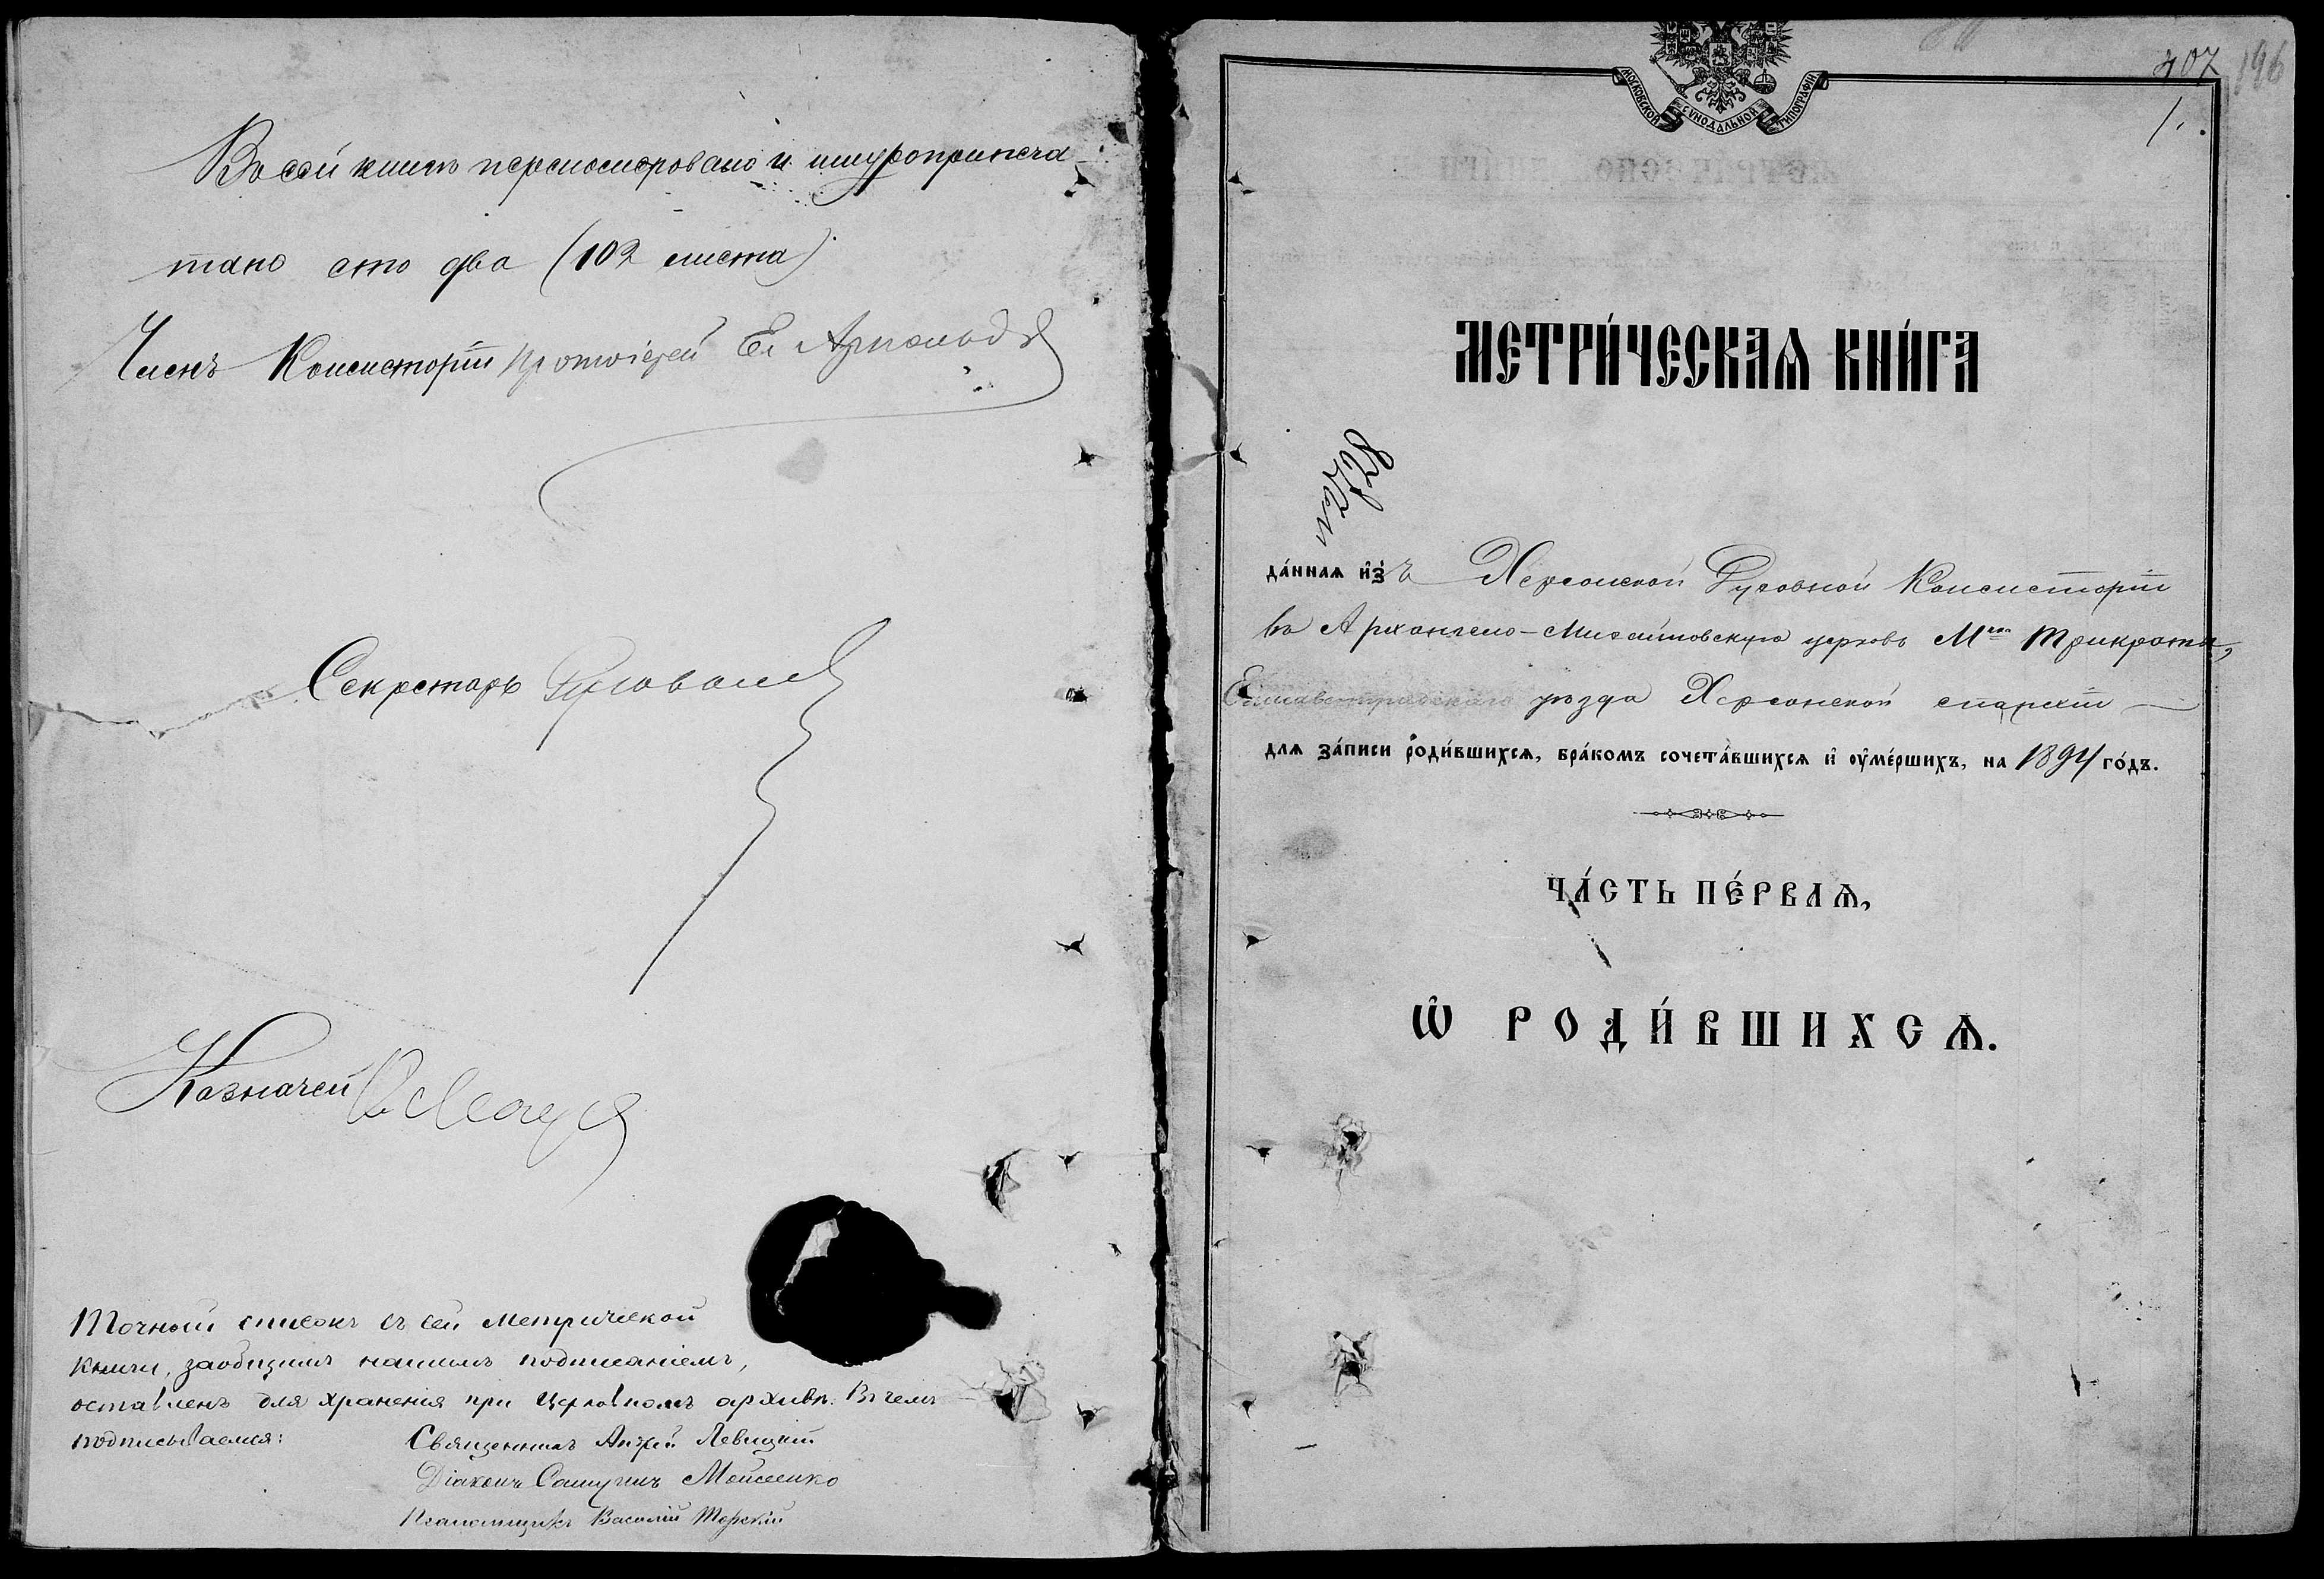 Въ сей книгѣ перенумеровано и шнуроприпеча
тано сто два (102 листа)
Членъ Консисторіи Протоіерей Ел. Арнольдъ
Секретарь
Казначей
Точный списокъ съ сей метрической
книги, заобщимъ нашимъ подписаніемъ,
оставленъ для храненія при Церковномъ архивѣ. Въ чемъ
подписываемся:
Священникъ Андрей Левицкій
Діаконъ Самуилъ Моисеенко
Псаломщикъ Василій Торскій
407 196
1.
МОСКОВСКОЙ СУНОДАЛЬНОЙ ТИПОГРАФІИ
МЕТРИ́ЧЕСКАѦ КНИ́ГА
да́ннаѧ и҆зъ Херсонской Духовной Консисторіи
въ Архангело-Михайловскую церковь Мѣс. Трикраты,
Елисаветградскаго уѣзда Херсонской епархіи
длѧ за́писи роди́вшихсѧ, бра́комъ сочета́вшихсѧ и҆ оу҆ме́ршихъ, на 1894 го́дъ.
ЧА́СТЬ ПЕ́РВАѦ,
Ѡ҆ РОДИ́ВШИХСѦ.